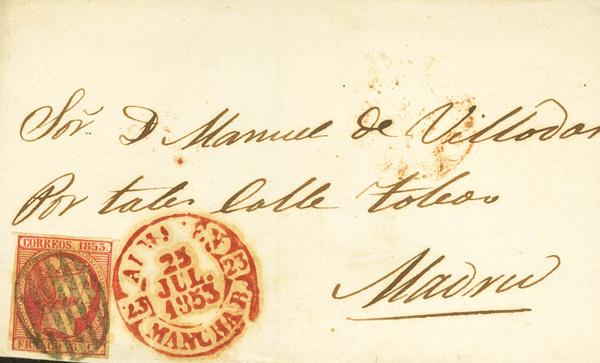 Sor. D Manuel de Villodas
Portales Calle Toledo
Madrid
CORREOS. 1853.
FRANCO 6 Cs
23 JUL. 1853
23 23
MANCHA B.